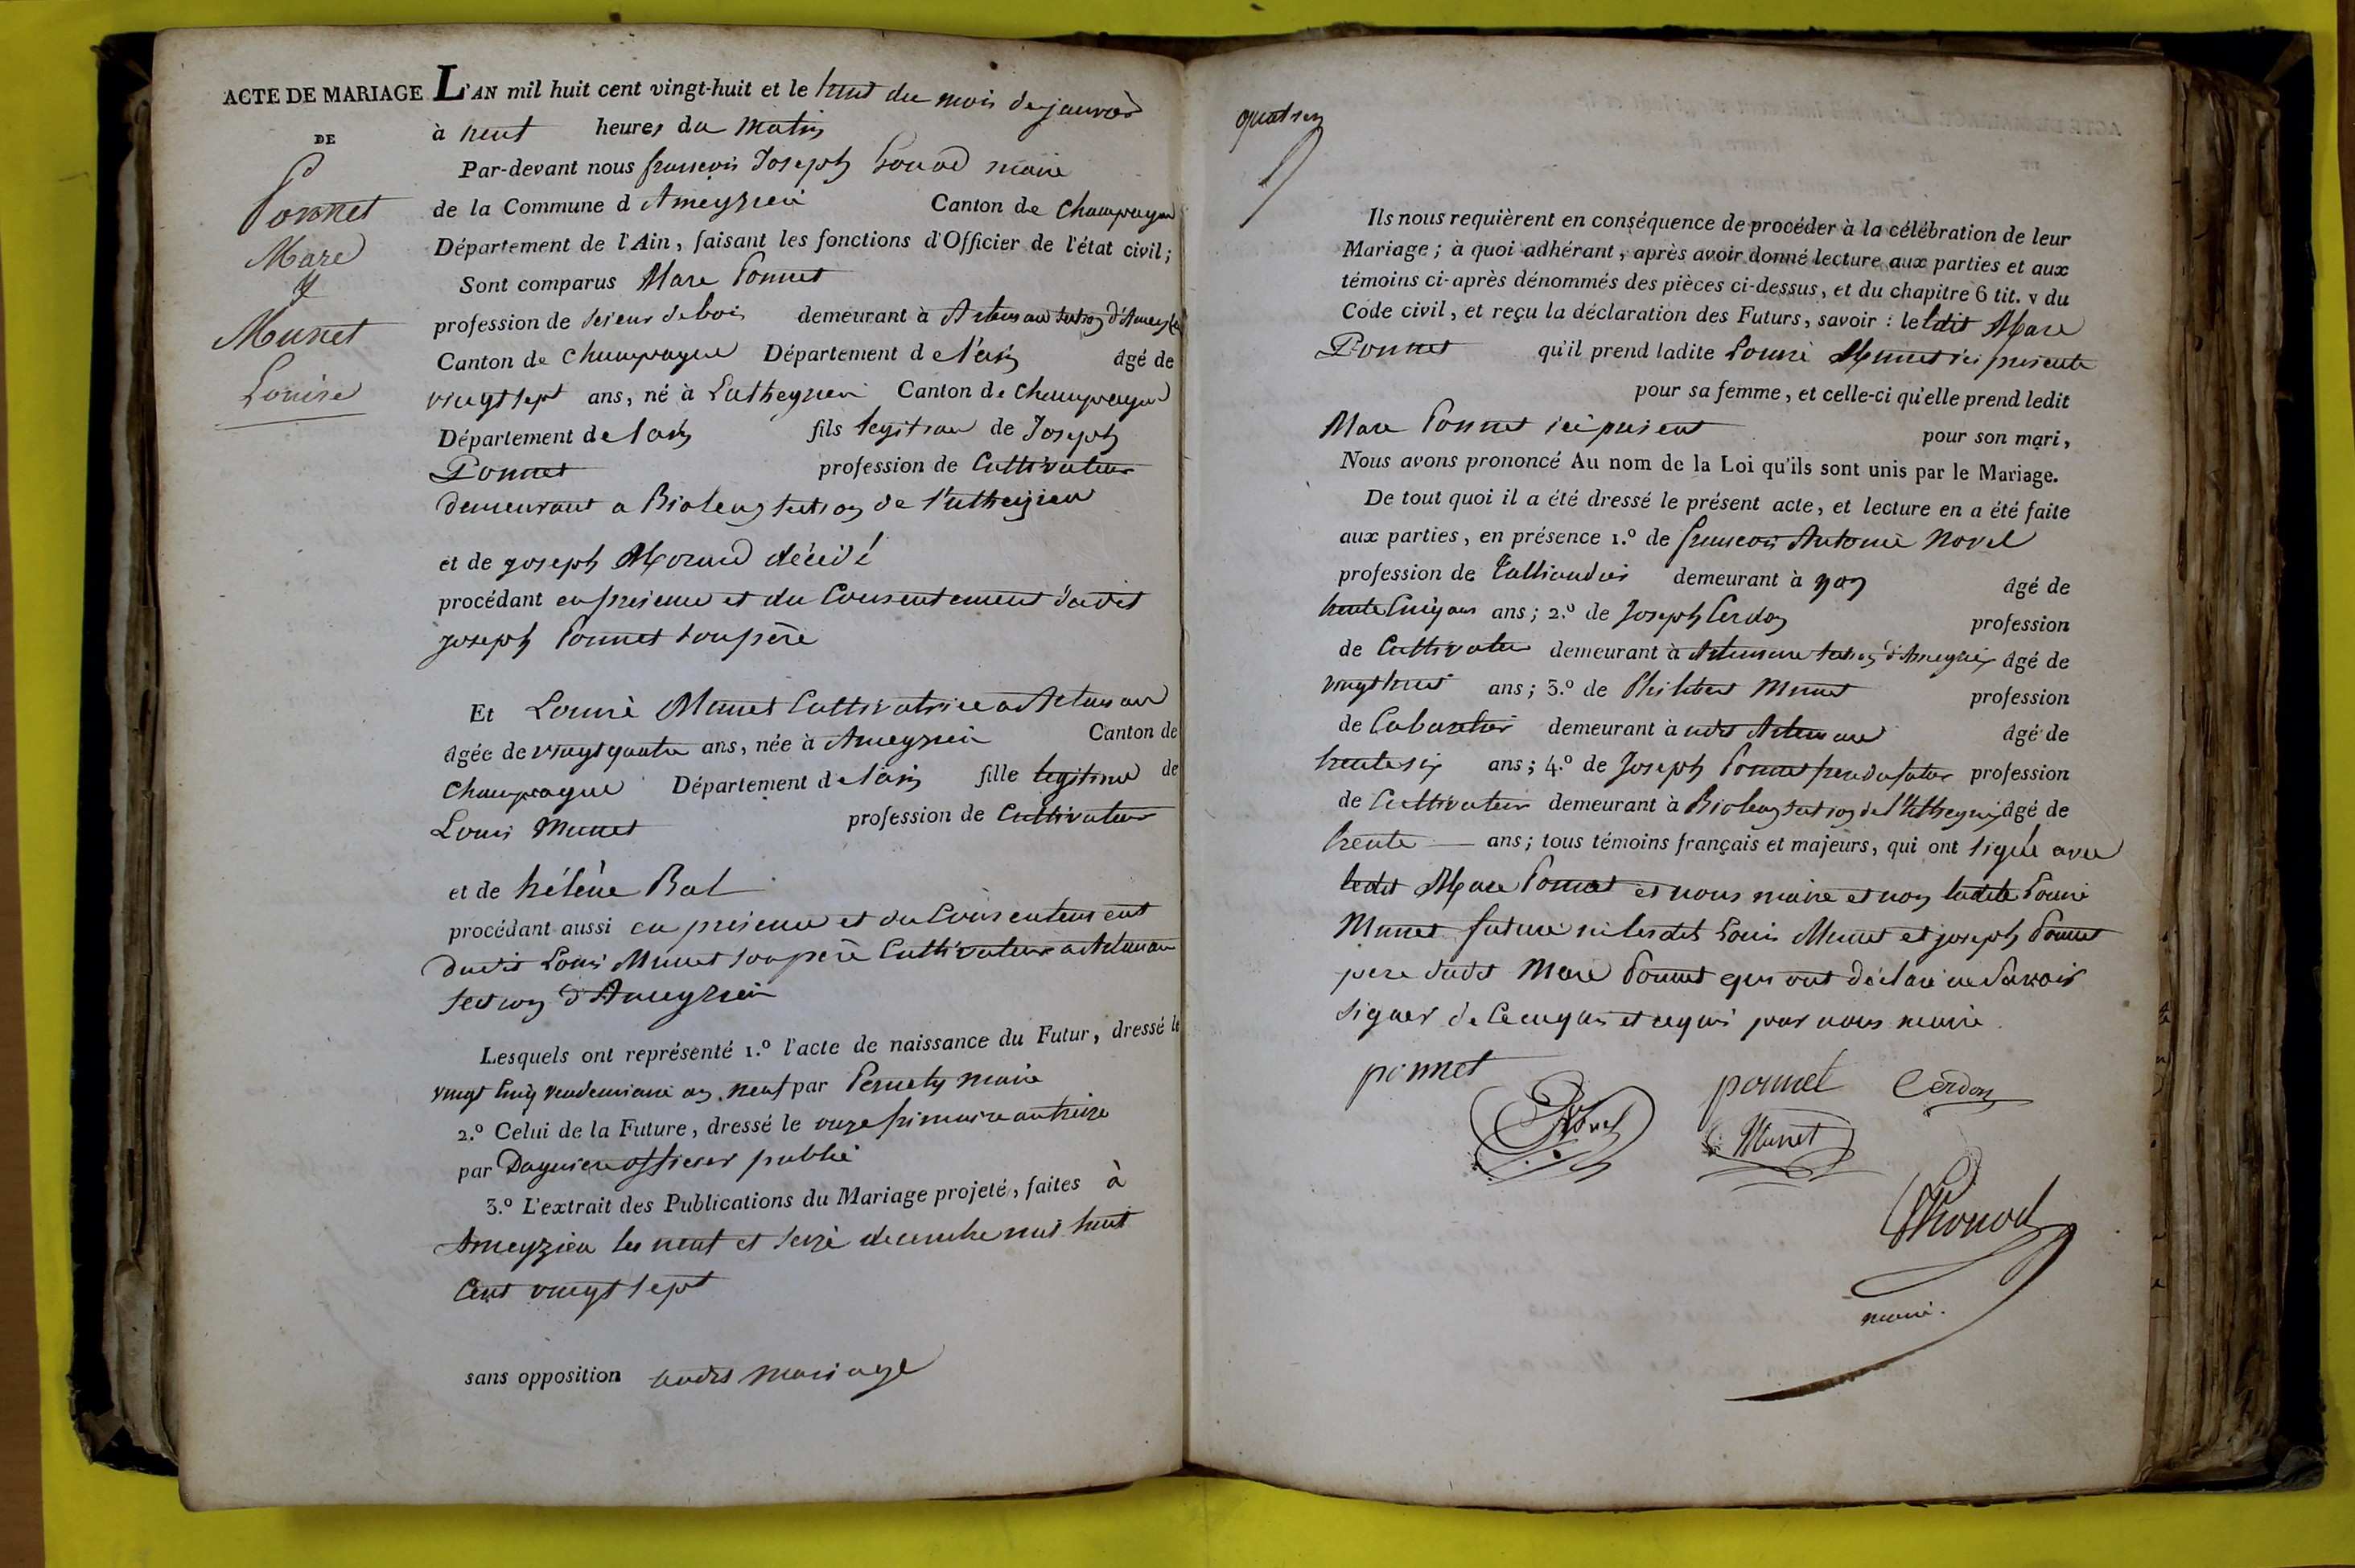 ACTE DE MARIAGE
DE
Ponnet
Marc
&
Munet
Louise
L'AN mil huit cent vingt-huit et le huit du mois de janvier
à neuf heures du matin
Par-devant nous françois Joseph maire
de la Commune d Ameyzieu Canton de Champagne
Département de l'Ain, faisant les fonctions d'Officier de l'état civil;
Sont comparus Marc Ponnet
profession de scieur de bois demeurant à Artemare section d'Ameyzieu
Canton de Champagne Département de l'ain âgé de
vingt sept ans, né à Luthezieu Canton de Champagne
Département de l'ain fils legitime de Joseph
Ponnet profession de Cultivateur
demeurant a Bioleaz section de Luthezieu
et de joseph Morand décédé
procédant en presence et du Consentement dudit
joseph Ponnet son père
Et Louise Munet Cultivatrice a Artemare
âgée de vingt quatre ans, née à Ameyzieu Canton de
Champagne Département de l'ain fille legitime de
Louis Munet profession de Cultivateur
et de hélène Bal
procédant aussi en presence et du Consentement
dudit Louis Munet son père Cultivateur a Artemare
section d'Ameyzieu
Lesquels ont représenté 1.º l'acte de naissance du Futur, dressé le
vingt cinq vendemiaire an neuf par maire
2.º Celui de la Future, dressé le onze frimaire an treize
par officier public
3.º L'extrait des Publications du Mariage projeté, faites à
Ameyzieu les neuf et seize decembre mil huit
Cent vingt sept
sans opposition audit mariage
Ils nous requièrent en conséquence de procéder à la célébration de leur
Mariage; à quoi adhérant, après avoir donné lecture aux parties et aux
témoins ci-après dénommés des pièces ci-dessus, et du chapitre 6 tit. v du
Code civil, et reçu la déclaration des Futurs, savoir : le ledit Marc
Ponnet qu'il prend ladite Louise Munet ici presente
pour sa femme, et celle-ci qu'elle prend ledit
Marc Ponnet ici present pour son mari,
Nous avons prononcé Au nom de la Loi qu'ils sont unis par le Mariage.
De tout quoi il a été dressé le présent acte, et lecture en a été faite
aux parties, en présence 1.º de francois Antoine Novel
profession de demeurant à yon âgé de
trente Cinq ans ans; 2.º de Joseph Cerdon profession
de Cultivateur demeurant à Artemare section d'Ameyzieu âgé de
vingt huit ans; 3.º de Philibert Munet profession
de Cabaretier demeurant à audit Artemare âgé de
trente six ans; 4.º de Joseph Ponnet frere du futur profession
de Cultivateur demeurant à Bioleaz section de Luthezieu âgé de
trente ans; tous témoins français et majeurs, qui ont signé avec
ledit Marc Ponnet et nous maire et non ladite Louise
Munet future ni lesdits Louis Munet et joseph Ponnet
pere dudit Marc Ponnet qui ont déclaré ne savoir
signer de ce enquis et requis par nous maire.
ponnet
ponnet
Cerdon
Novel
Munet
maire.